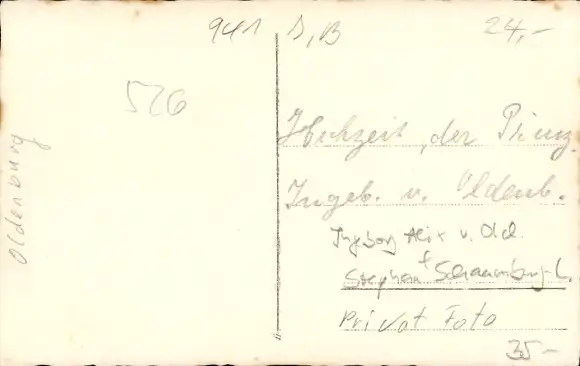 941 D,B 24,-
526
Oldenburg
Hochzeit, der Prinz.
Ingeb. v. Oldenb.
Ingeborg Alix v. Old.
+
Stephan Schaumburg-L.
Privat Foto
35-